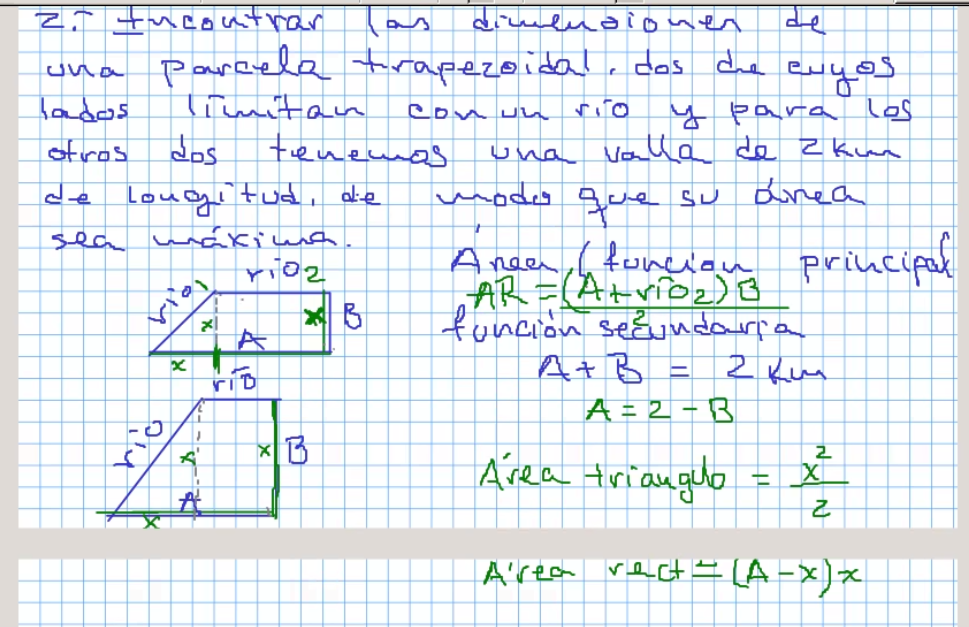 2.- Encontrar las dimensiones de
una parcela trapezoidal, dos de cuyos
lados limitan con un río y para los
otros dos tenemos una valla de 2 km
de longitud, de modo que su área
sea máxima.
río 2
río 1
x
x
B
A
x
río
río
x
x
B
A
x
Área (función principal
AR = (A + río2) B
2
función secundaria
A + B = 2 km
A = 2 - B
Área triangulo = x²
2
Área rect = (A - x) x